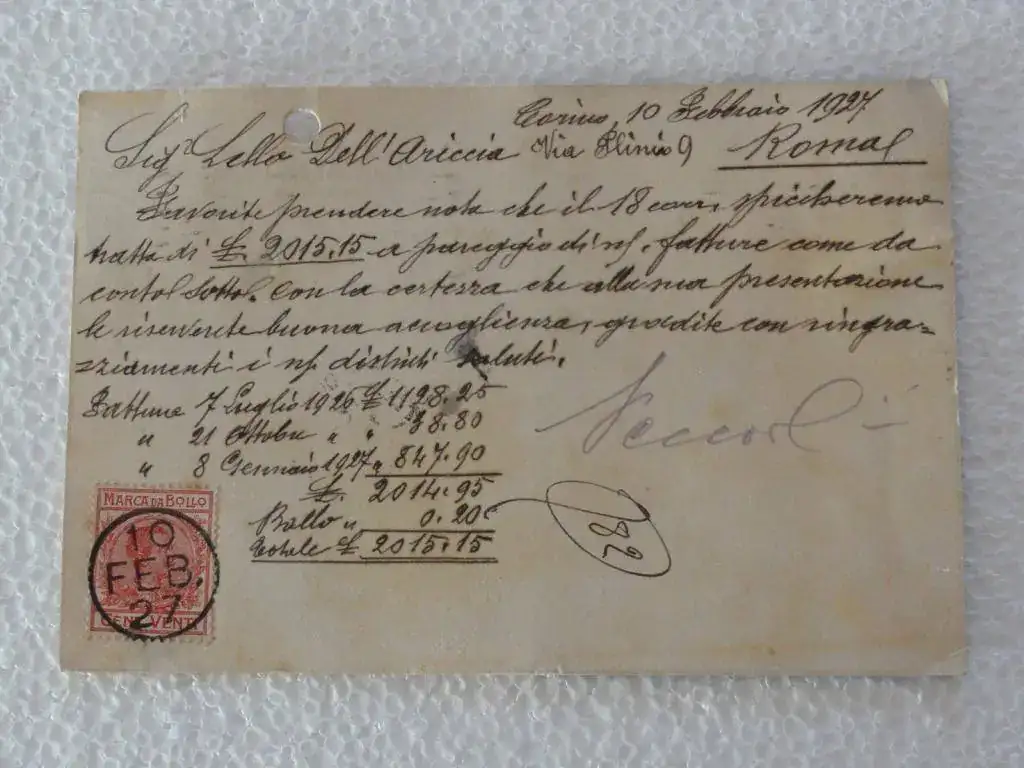 Torino, 10 Febbraio 1927
Sigr Lello Dell'Ariccia Via Plinio 9 Roma
Favorite prendere nota che il 18 corr. spiccheremo
tratta di £. 2015.15 a pareggio di ns/. fatture come da
conto sotto. Con la certezza che alla sua presentazione
le riserverete buona accoglienza, gradite con ringra=
zziamenti i ns/. distinti saluti.
Fatture 7 Luglio 1926 £ 1128.25
" 21 Ottobre " " 38.80
" 8 Gennaio 1927 " 847.90
£. 2014.95
Bollo " 0.20
Totale £ 2015.15
182
MARCA DA BOLLO
10
FEB.
27
CENT VENTI